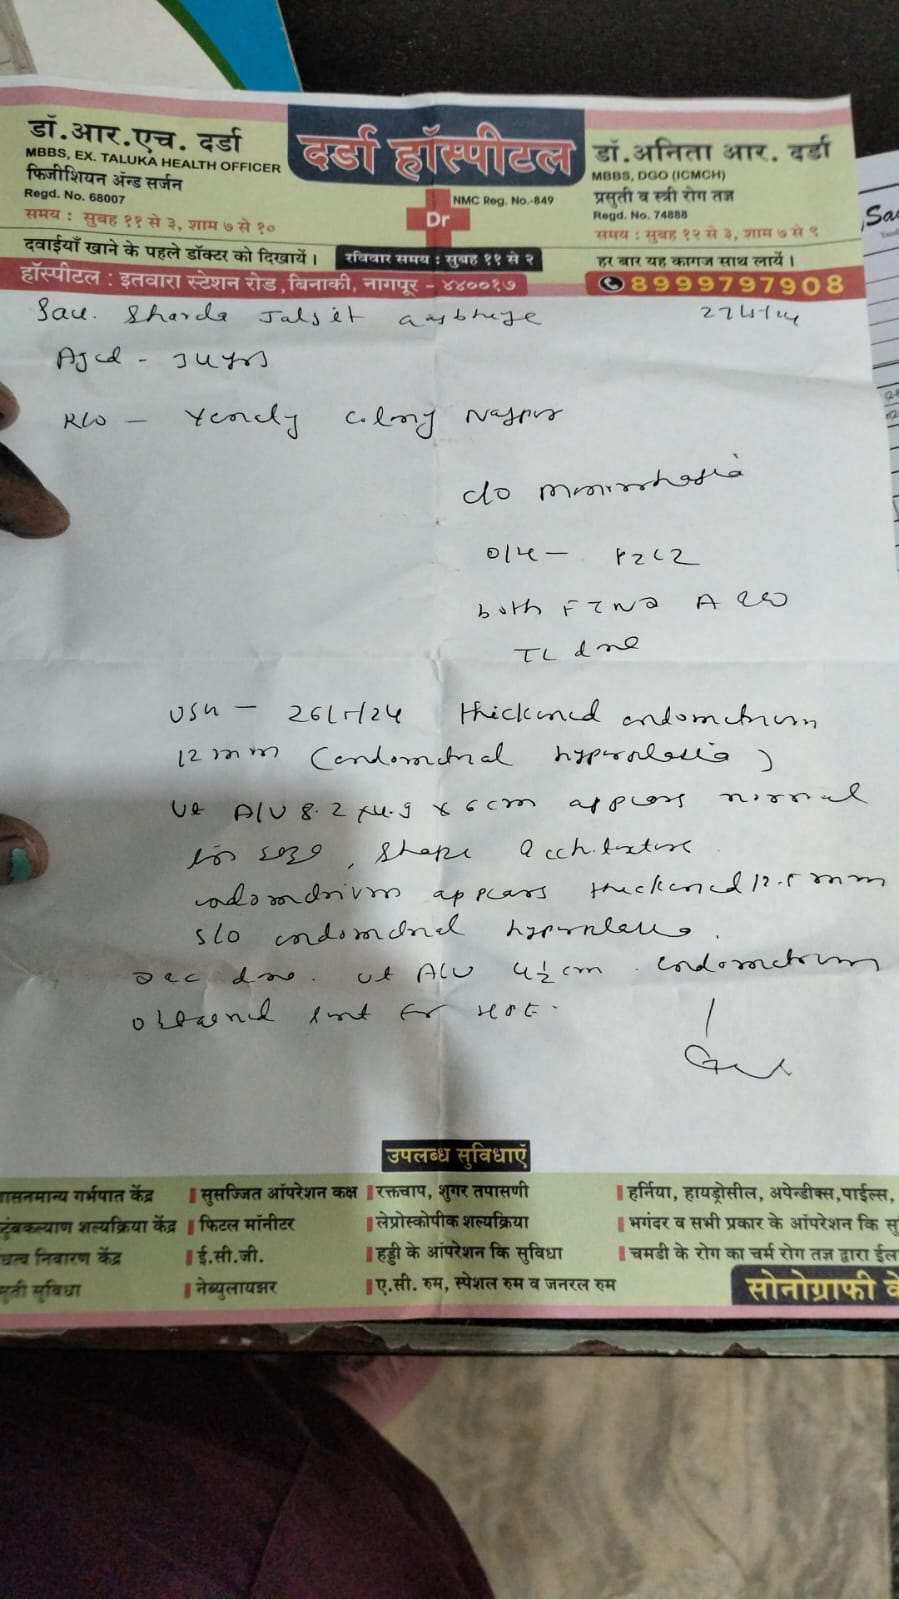 डॉ.आर.एच. दर्डा
MBBS, EX. TALUKA HEALTH OFFICER
फिजीशियन अॅन्ड सर्जन
Regd. No. 68007
समय : सुबह ११ से ३, शाम ७ से १०
दवाईयाँ खाने के पहले डॉक्टर को दिखायें ।
दर्डा हॉस्पीटल
NMC Reg. No.-849
Dr
रविवार समय : सुबह ११ से २
डॉ.अनिता आर. दर्डा
MBBS, DGO (ICMCH)
प्रसुती व स्त्री रोग तज्ञ
Regd. No. 74888
समय : सुबह १२ से ३, शाम ७ से ९
हर बार यह कागज साथ लायें ।
हॉस्पीटल : इतवारा स्टेशन रोड, बिनाकी, नागपूर - ४४००१७
8999797908
Sau. Sharda
Aged -
R/o - Colony Nagpur
c/o menorrhagia
O/H - P2L2
both FTND A
TL done
USG - thickened endometrium
12 mm (endometrial hyperplasia)
Ut A/V 8.2 x 4.9 x 6 cm appears normal
in size, shape
endometrium appears thickened 12.5 mm
S/O endometrial hyperplasia.
done. Ut A/V 4½ cm. Endometrium
obtained sent for HPE.
उपलब्ध सुविधाएँ
गर्भपात केंद्र
शल्यक्रिया केंद्र
निवारण केंद्र
सुविधा
सुसज्जित ऑपरेशन कक्ष
फिटल मॉनीटर
ई.सी.जी.
नेब्युलायझर
रक्तचाप, शुगर तपासणी
लेप्रोस्कोपीक शल्यक्रिया
हड्डी के ऑपरेशन कि सुविधा
ए.सी. रुम, स्पेशल रुम व जनरल रुम
हर्निया, हायड्रोसील, अपेन्डीक्स, पाईल्स,
भगंदर व सभी प्रकार के ऑपरेशन कि
चमडी के रोग का चर्म रोग तज्ञ द्वारा
सोनोग्राफी